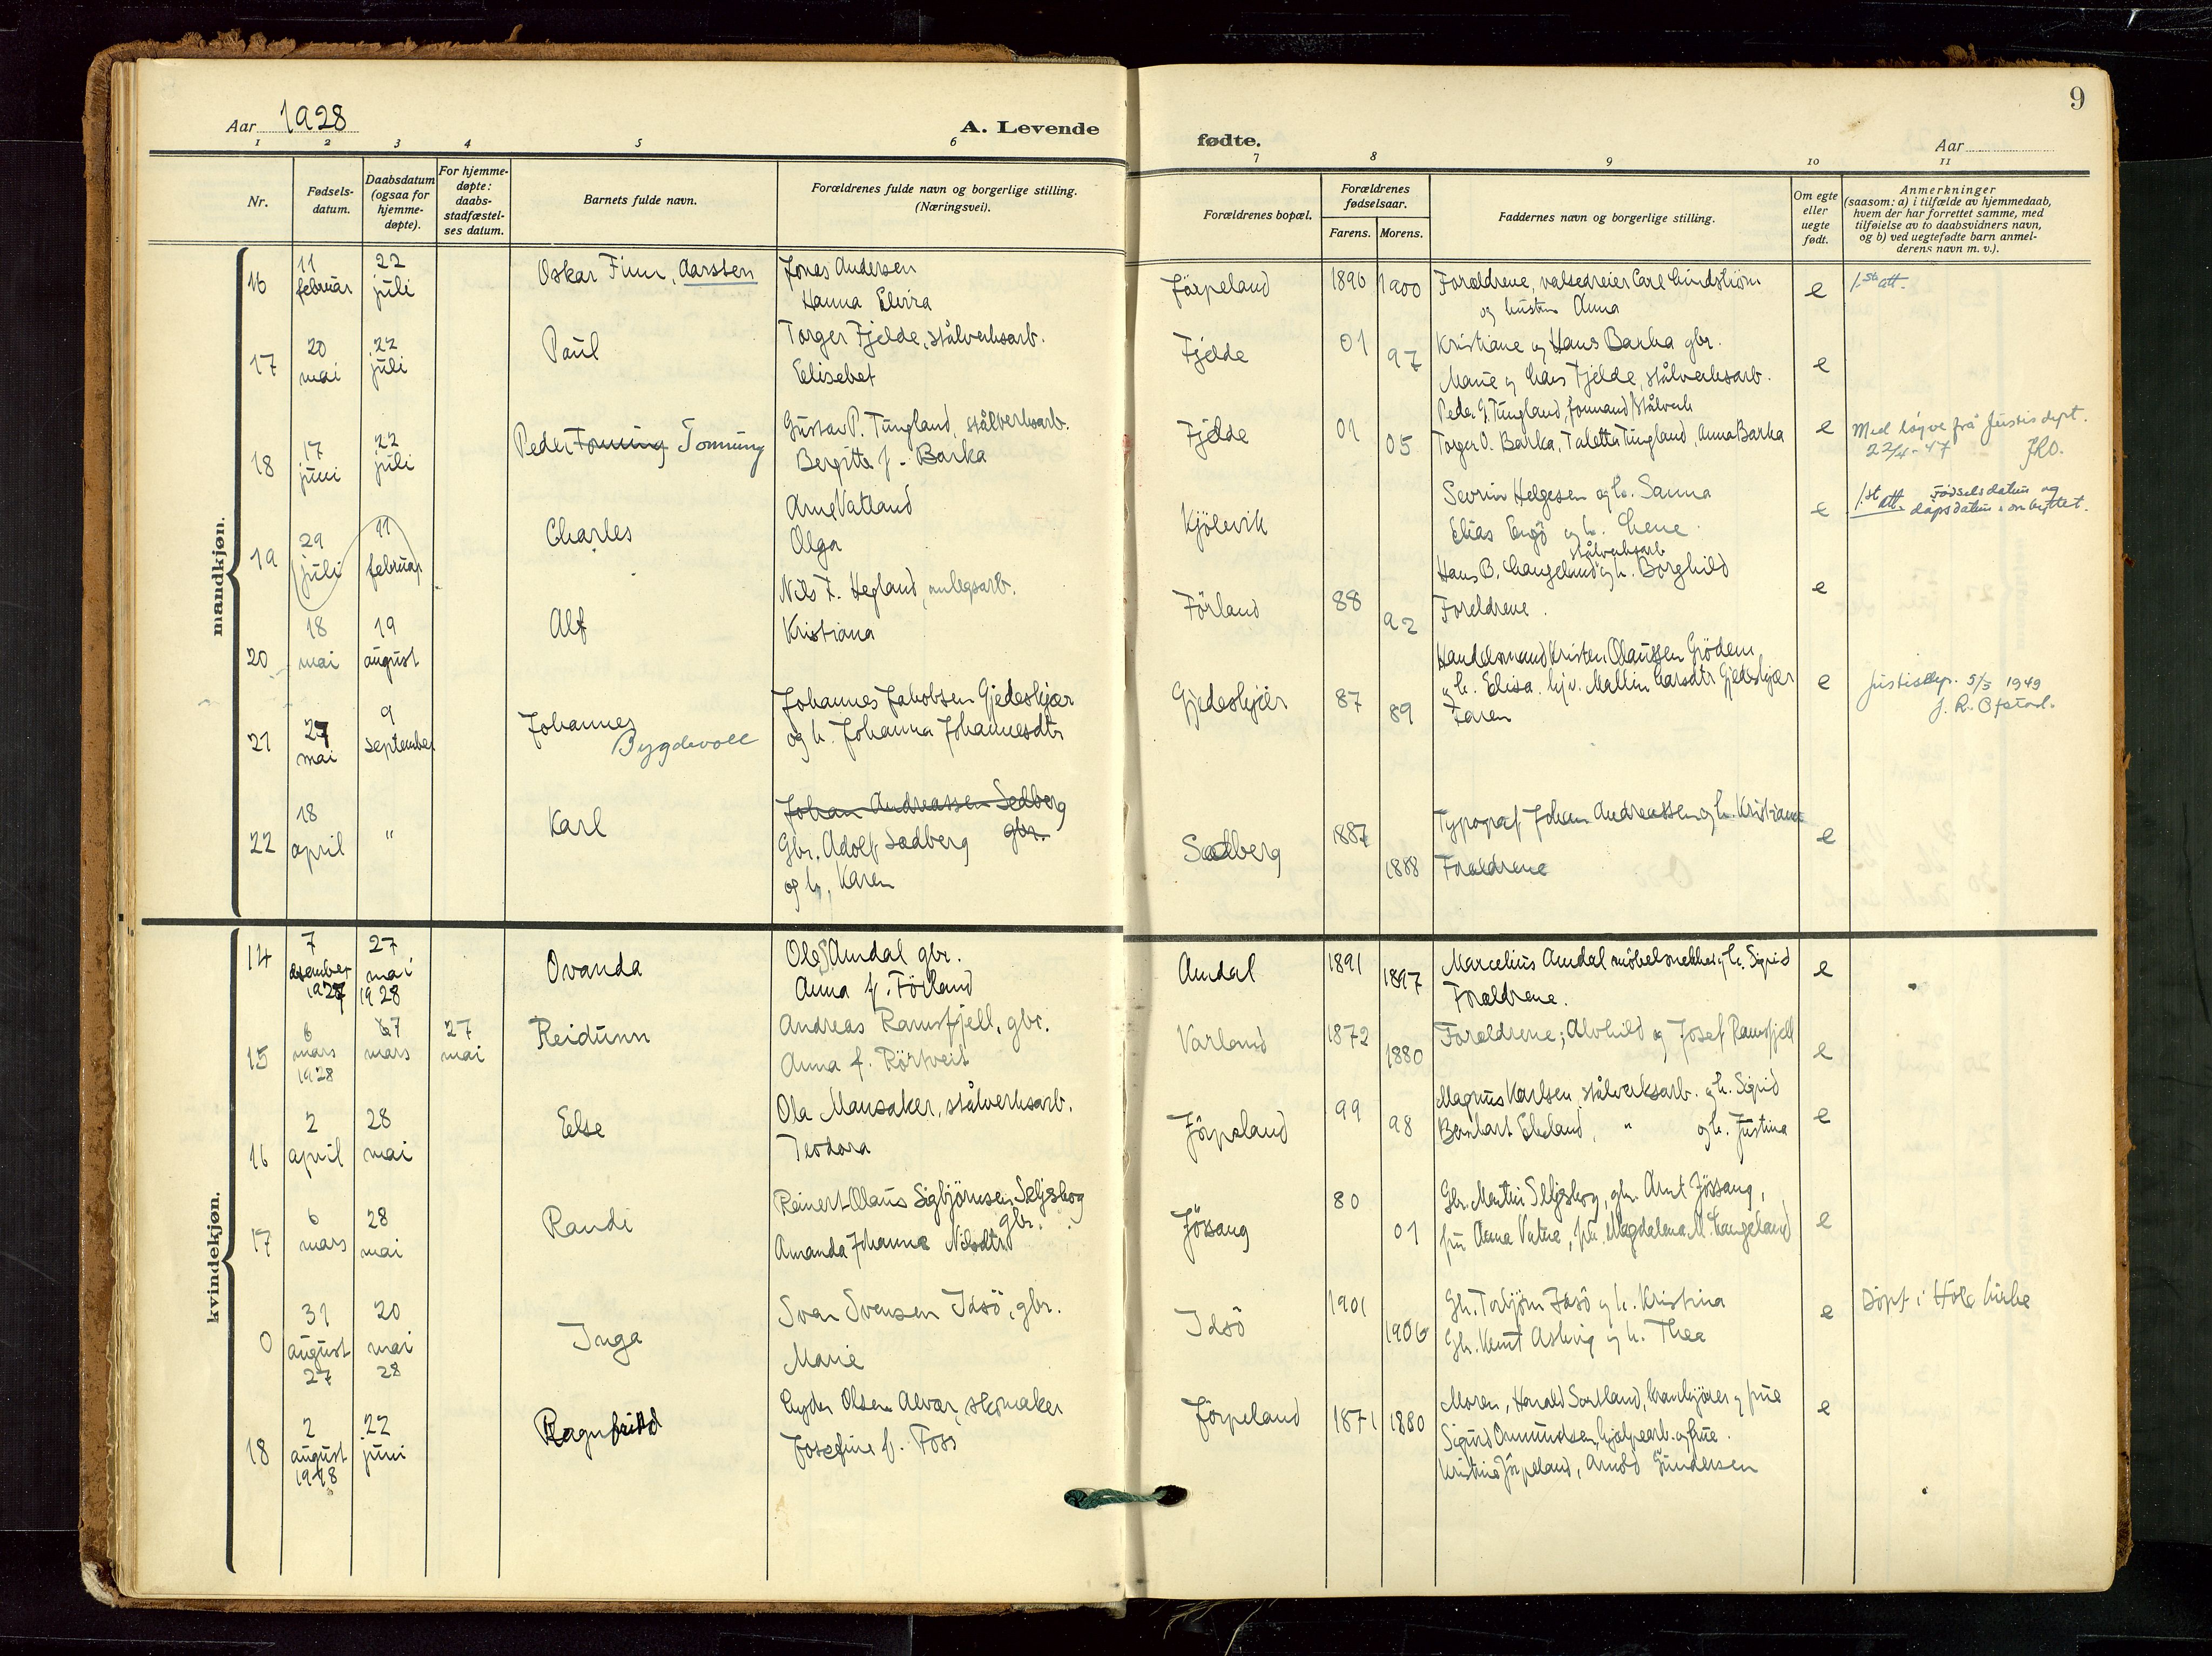 9
Aar 1928
A. Levende
fødte.
Aar
1 2 3 4 5 6 7 8 9 10 11
Nr.
Fødsels-
datum.
Daabsdatum
(ogsaa for
hjemme-
døpte).
For hjemme-
døpte:
daabs-
stadfæstel-
ses datum.
Barnets fulde navn.
Forældrenes fulde navn og borgerlige stilling.
(Næringsvei).
Forældrenes bopæl.
Forældrenes
fødselsaar.
Farens. Morens.
Faddernes navn og borgerlige stilling.
Om egte
eller
uegte
født.
Anmerkninger
(saasom: a) i tilfælde av hjemmedaab,
hvem der har forrettet samme, med
tilføielse av to daabsvidners navn,
og b) ved uegtefødte barn anmel-
derens navn m. v.).
mandkjøn.
16
11 februar
22 juli
Oskar Finn, Aarsten
Jonas Andersen
Hanna Elvira
Jørpeland
1896 1900
Forældrene, valsedreier Carl Lindstrøm
og hustru Anna
e
1. st att.
17
20 mai
22 juli
Paul
Torger Fjelde, stålverksarb.
Elisabet
Fjelde
01 97
Kristiane og Hans Barka gbr.
Marie og Hans Fjelde, stålverksarb.
e
18
17 juni
22 juli
Peder Tonning Tonning
Gustav P. Tungland, stålverksarb.
Bergitte f. Barka
Fjelde
01 05
Peder G. Tungland, formand stålverk
Torger O. Barka, Taletta Tungland, Anna Barka
e
Med løyve frå Justisdept.
22/4-47
19
29 juli
11 februar
Charles
Arne Vatland
Olga
Kjölevik
Sevrin Helgesen og h. Sanna
Elias Engö og h. Lene
e
1. st att. Fødselsdatum og
dåpsdatum ombyttet.
20
18 mai
19 august
Alf
Nils F. Hegland, anlegsarb.
Kristiana
Förland
88 92
stålverksarb
Hans B. Langeland og h. Borghild
Foreldrene.
e
21
27 mai
9 september
Johannes
Bygdevoll
Johannes Jakobsen Gjedeskjær
og h. Johanna Johannesdtr
Gjedeskjær
87 89
Handelsmand Kristen Olaussen Grödem
og h. Elisa. Mallin Larsdtr Gjedeskjær
Faren
e
Justisdep. 5/5 1949
J. R. Ofstad.
22
18 april
"
Karl
Johan Andreassen Sedberg
gbr.
Gbr. Adolf Sedberg
og h. Karen
Sedberg
1887 1888
Typograf Johan Andreassen og h. Kristiane
Forældrene
e
kvindekjøn.
14
7 desember 1927
27 mai 1928
Ovanda
Ole S Amdal gbr.
Anna f. Förland
Amdal
1891 1897
Marcelius Amdal møbelsnekker og h. Sigrid
Forældrene.
e
15
6 mars 1928
27 mars
27 mai
Reidunn
Andreas Ramsfjell, gbr.
Anna f. Rörtveit
Varland
1872 1880
Forældrene; Alvhild og Josef Ramsfjell
e
16
2 april
28 mai
Else
Ola Mausaker, stålverksarb.
Teodora
Jörpeland
99 98
Magnus Karlsen, stålverksarb. og h. Sigrid
Bernhart Ekeland, " og h. Justina
e
17
6 mars
28 mai
Randi
Reinert Olaus Sigbjörnsen Seljeskog
gbr.
Amanda Johanne Nilsdtr
Jössang
80 01
Gbr. Martin Seljeskog, gbr. Arnt Jössang,
fru Anna Vatne, frk. Magdalena M. Langeland
e
0
31 august 27
20 mai 28
Inga
Sven Svensen Idsö, gbr.
Marie
Idsö
1901 1906
Gbr. Torbjörn Idsö og h. Kristina
Gbr. Knut Askvig og h. Thea
e
Döpt i Höle kirke
18
2 august 1928
22 juni
Ragnfrid
Olsen Alvar, skomaker
Josefine f. Foss
Jörpeland
1871 1880
Moren, Harald Sortland, krankjører og frue
Sigurd Ommundsen, hjelpearb. og frue.
Kristine Jörpeland, Arnold Gundersen
e